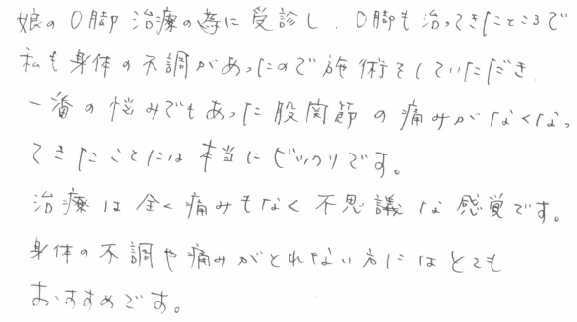 娘のO脚治療の為に受診し、O脚も治ってきたところで
私も身体の不調があったので施術をしていただき
一番の悩みでもあった股関節の痛みがなくなっ
てきたことには本当にビックリです。
治療は全く痛みもなく不思議な感覚です。
身体の不調や痛みがとれない方にはとても
おすすめです。